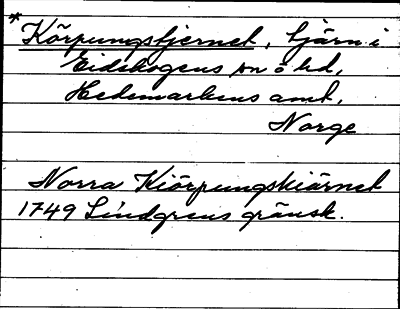 *Körpungstjernet, tjärn i
Eidskogens sn o hd,
Hedemarkens amt,
Norge
Norra Kiörpungskiärnet
1749 Lindgrens gränsk.